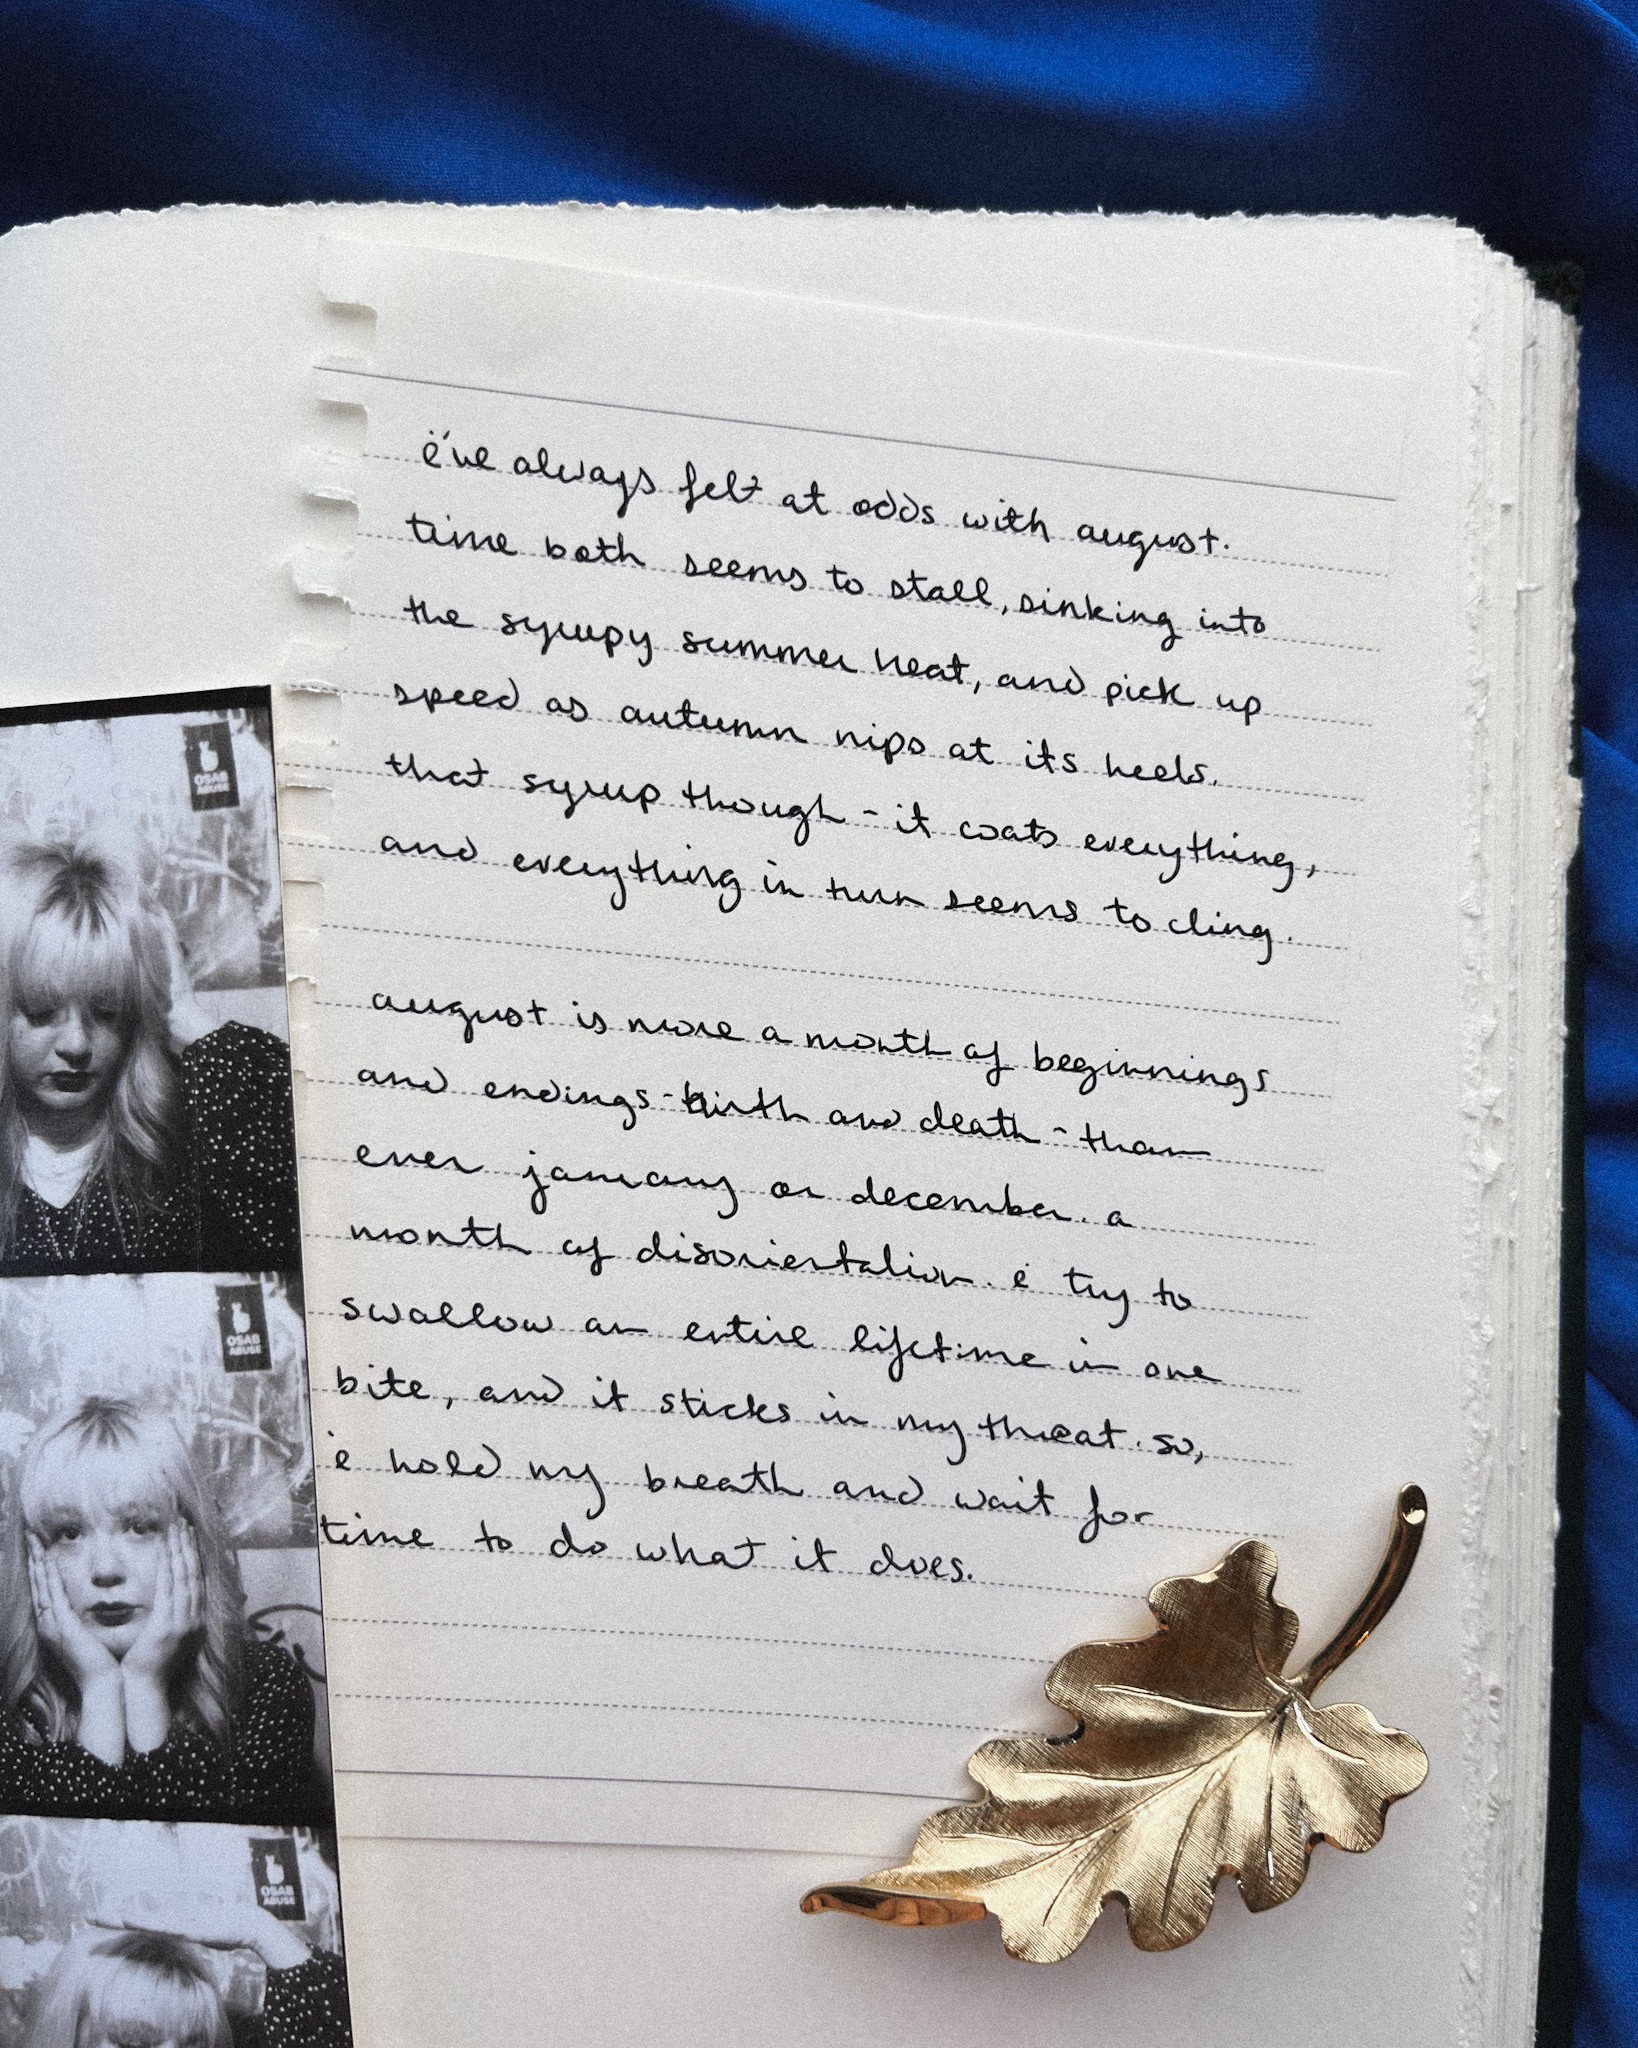 i've always felt at odds with august.
time both seems to stall, sinking into
the syrupy summer heat, and pick up
speed as autumn nips at its heels.
that syrup though - it coats everything,
and everything in turn seems to cling.
august is more a month of beginnings
and endings - birth and death - than
ever january or december. a
month of disorientation. i try to
swallow an entire lifetime in one
bite, and it sticks in my throat. so,
i hold my breath and wait for
time to do what it does.
OSAB
ABUSE
OSAB
ABUSE
OSAB
ABUSE